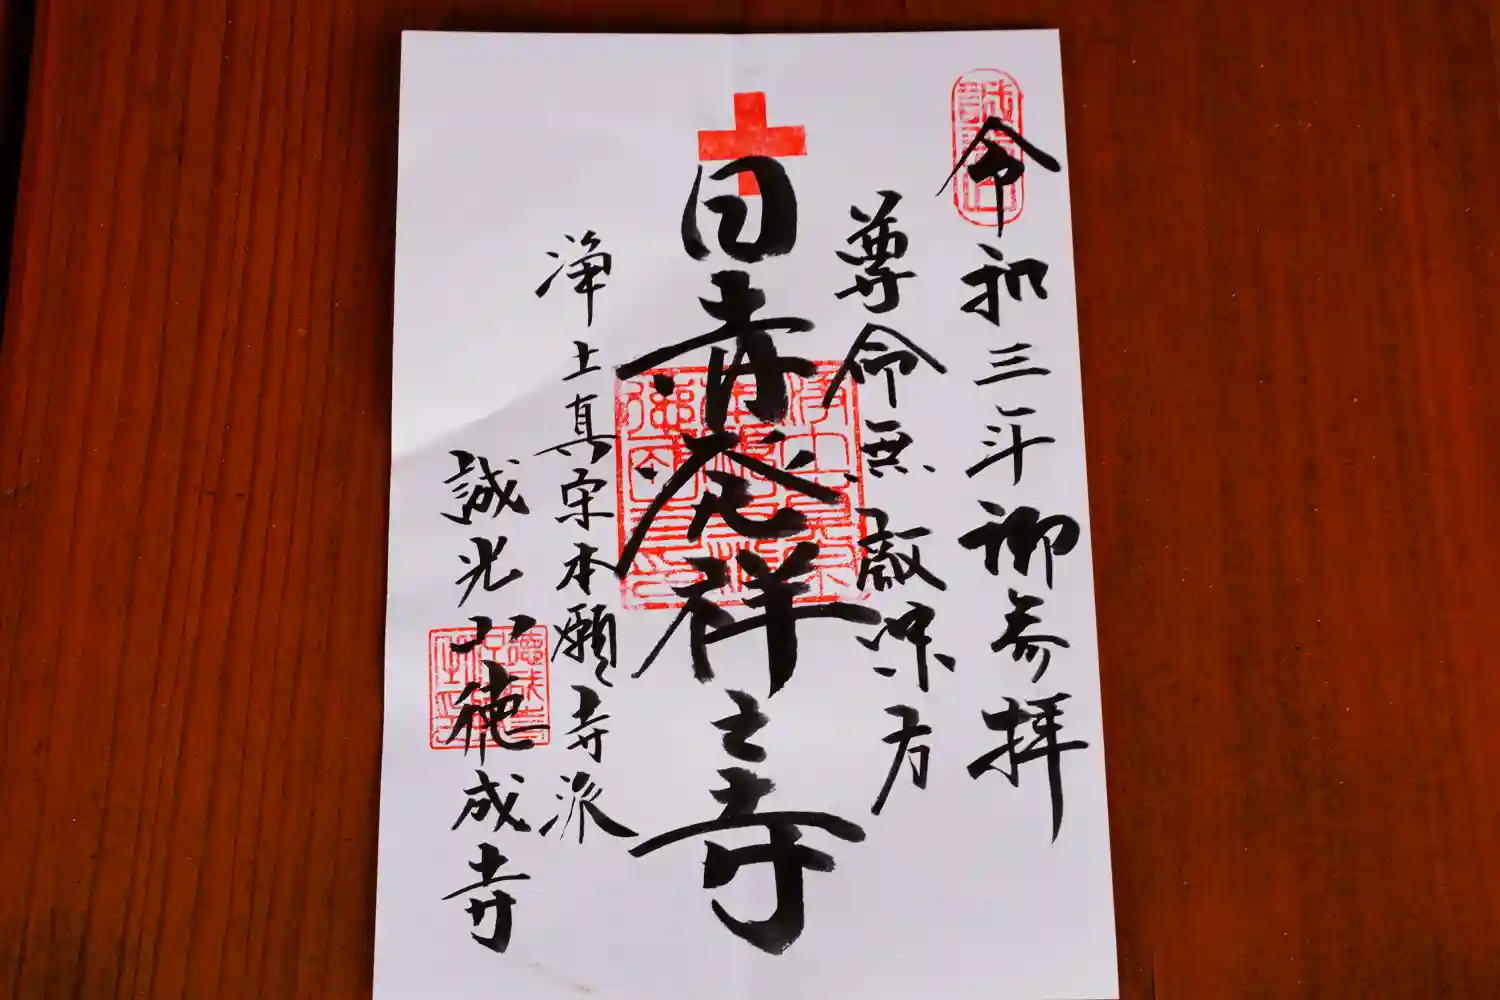 令和三年御参拝
尊命無敵味方
日赤発祥之寺
浄土真宗本願寺派
誠光山徳成寺